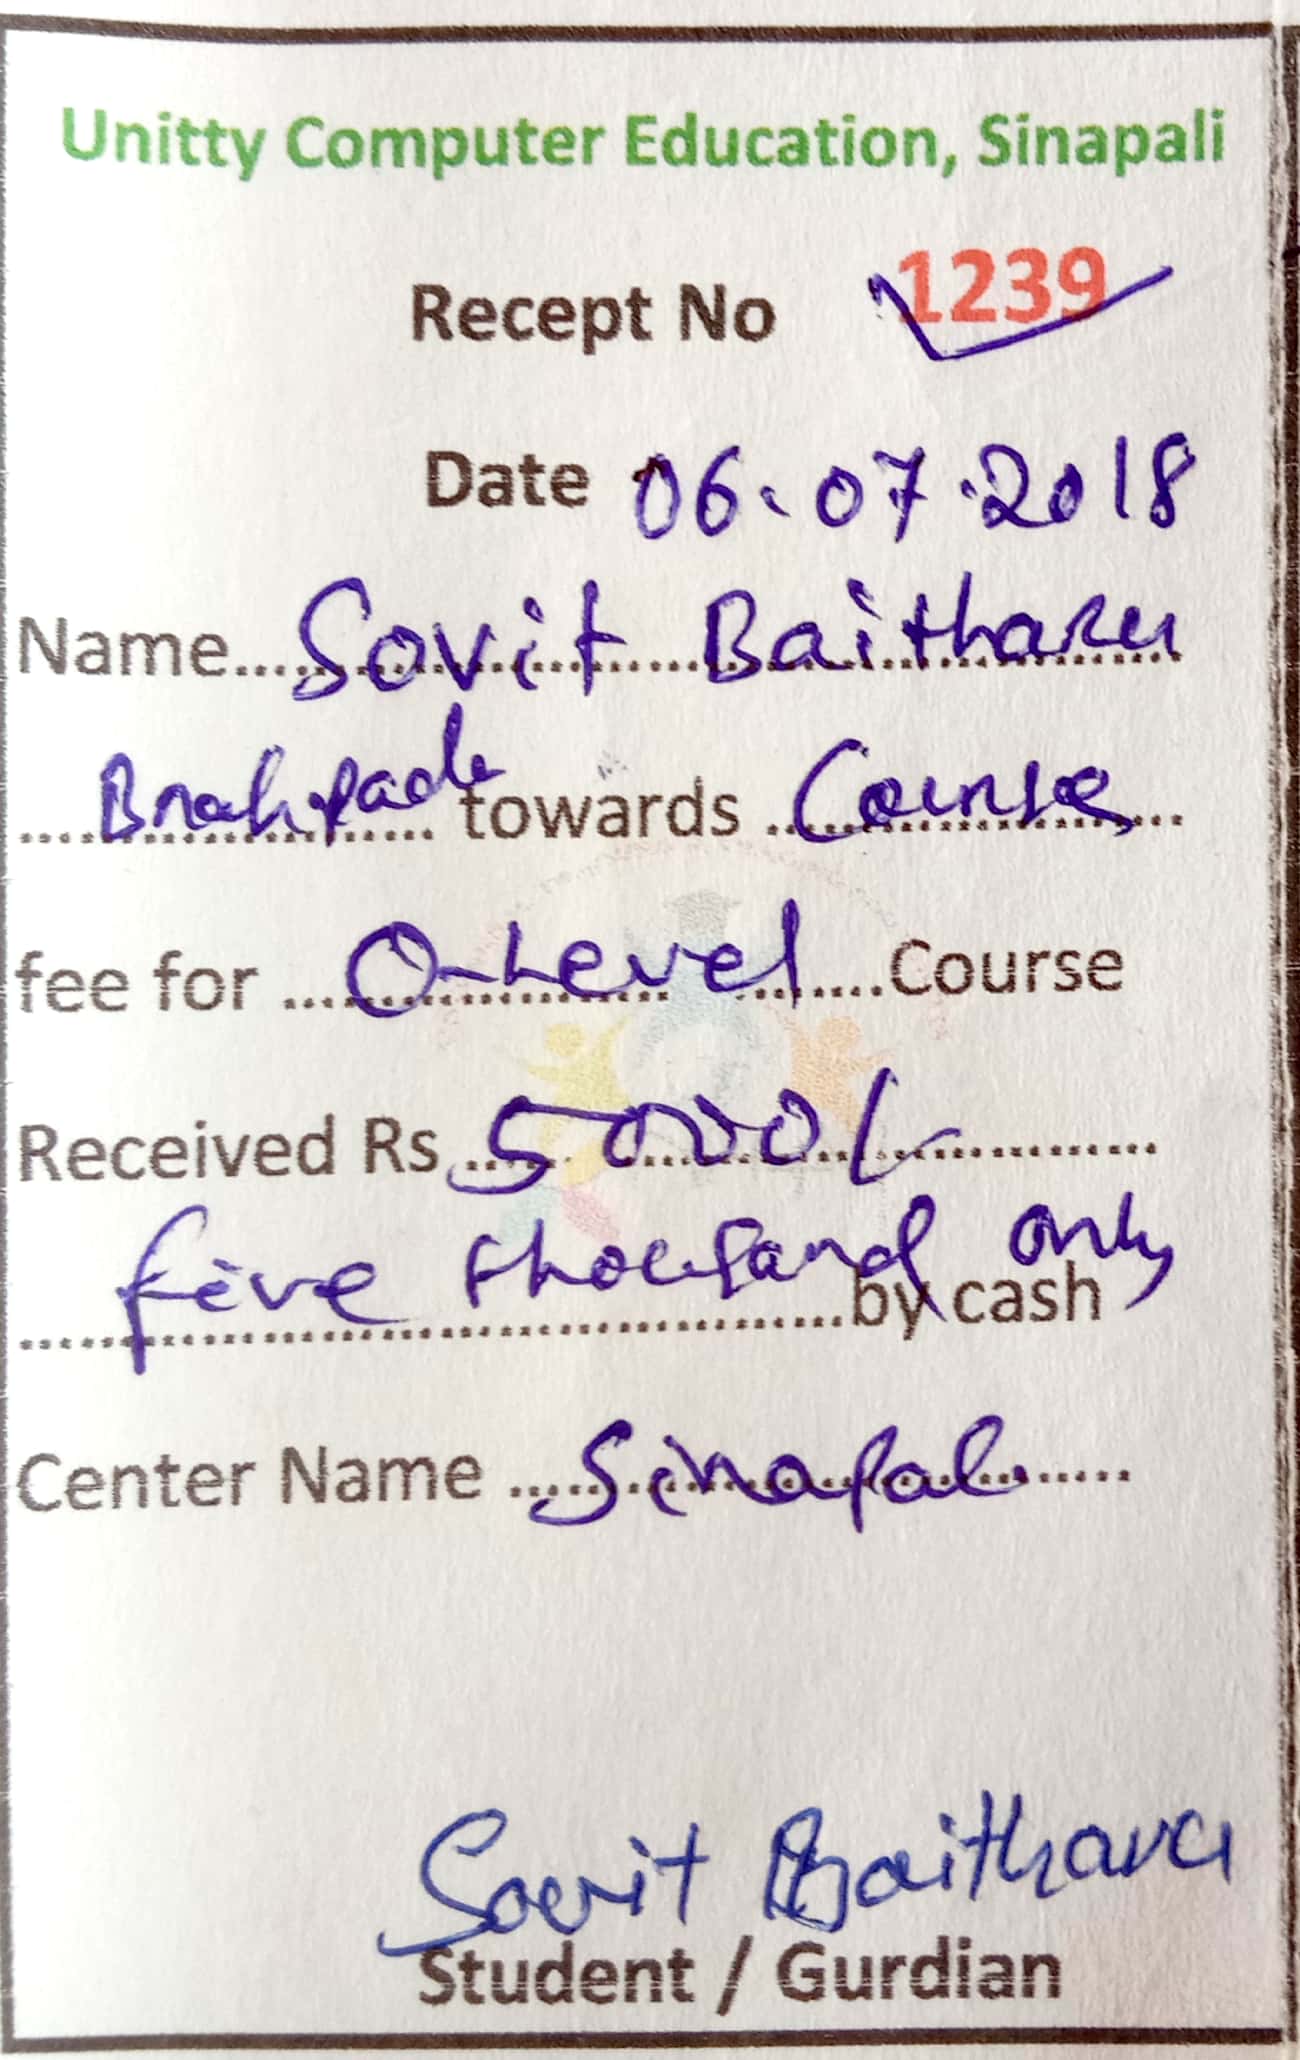 Unitty Computer Education, Sinapali
Recept No 1239
Date 06.07.2018
Name Sovit Baitharu
towards Course
fee for O-Level Course
Received Rs 5000/-
five thousand only by cash
Center Name Sinapali
Sovit Baitharu
Student / Gurdian